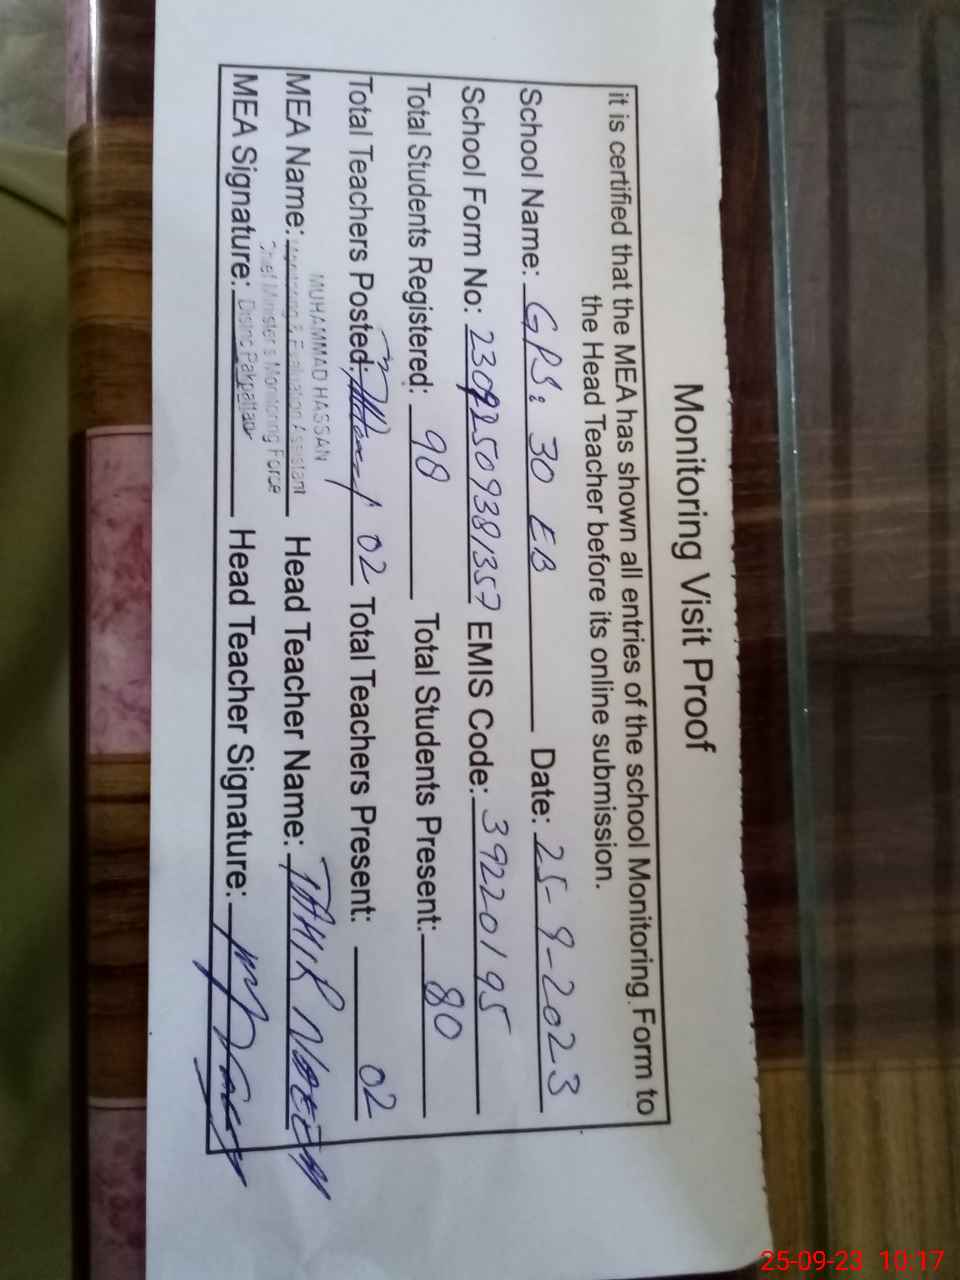 Monitoring Visit Proof
it is certified that the MEA has shown all entries of the school Monitoring Form to
the Head Teacher before its online submission.
School Name: GPS: 30 EB Date: 25-9-2023
School Form No: EMIS Code: 39220195
Total Students Registered: 98 Total Students Present: 80
Total Teachers Posted: 02 Total Teachers Present: 02
MUHAMMAD HASSAN
MEA Name: Monitoring & Evaluation Assistant Head Teacher Name: TAHIR NAEEM
Chief Minister's Monitoring Force
MEA Signature: District Pakpattan Head Teacher Signature:
25-09-23 10:17